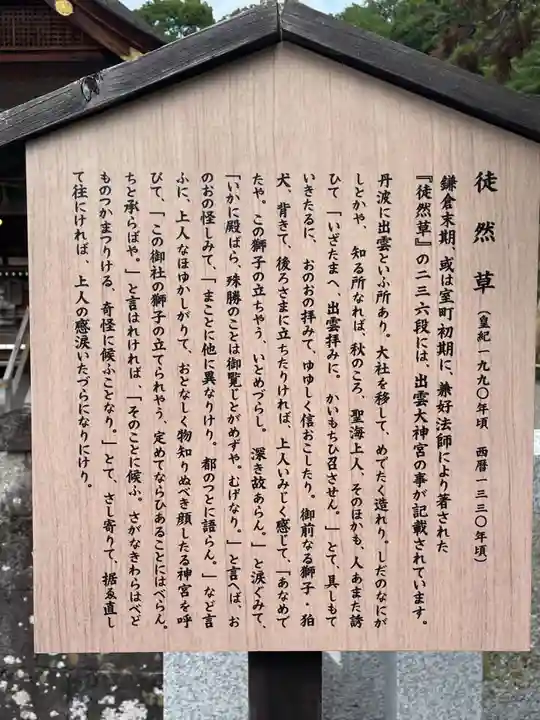 徒然草（皇紀一九九〇年頃　西暦一三三〇年頃）
鎌倉末期、或は室町初期に、兼好法師により著された
『徒然草』の二三六段には、出雲大神宮の事が記載されています。
丹波に出雲といふ所あり。大社を移して、めでたく造れり。しだのなにが
しとかや、知る所なれば、秋のころ、聖海上人、そのほかも、人あまた誘
ひて「いざたまへ、出雲拝みに。かいもちひ召させん。」とて、具しもて
いきたるに、おのおの拝みて、ゆゆしく信おこしたり。御前なる獅子・狛
犬、背きて、後ろさまに立ちたりければ、上人いみじく感じて、「あなめで
たや。この獅子の立ちやう、いとめづらし。深き故あらん。」と涙ぐみて、
「いかに殿ばら、殊勝のことは御覧じとがめずや。むげなり。」と言へば、お
のおの怪しみて、「まことに他に異なりけり。都のつとに語らん。」など言
ふに、上人なほゆかしがりて、おとなしく物知りぬべき顔したる神宮を呼
びて、「この御社の獅子の立てられやう、定めてならひあることにはべらん。
ちと承らばや。」と言はれければ、「そのことに候ふ。さがなきわらはべど
ものつかまつりける、奇怪に候ふことなり。」とて、さし寄りて、据ゑ直し
て往にければ、上人の感涙いたづらになりにけり。